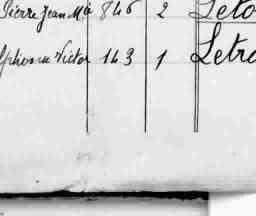 Pierre Jean Ma 846 2 Leto
Alphonse Victor 143 1 Letro